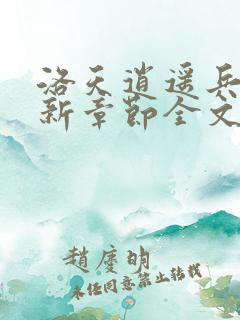 洛天逍遥兵
新章节全文
趙慶明
未经同意禁止转载